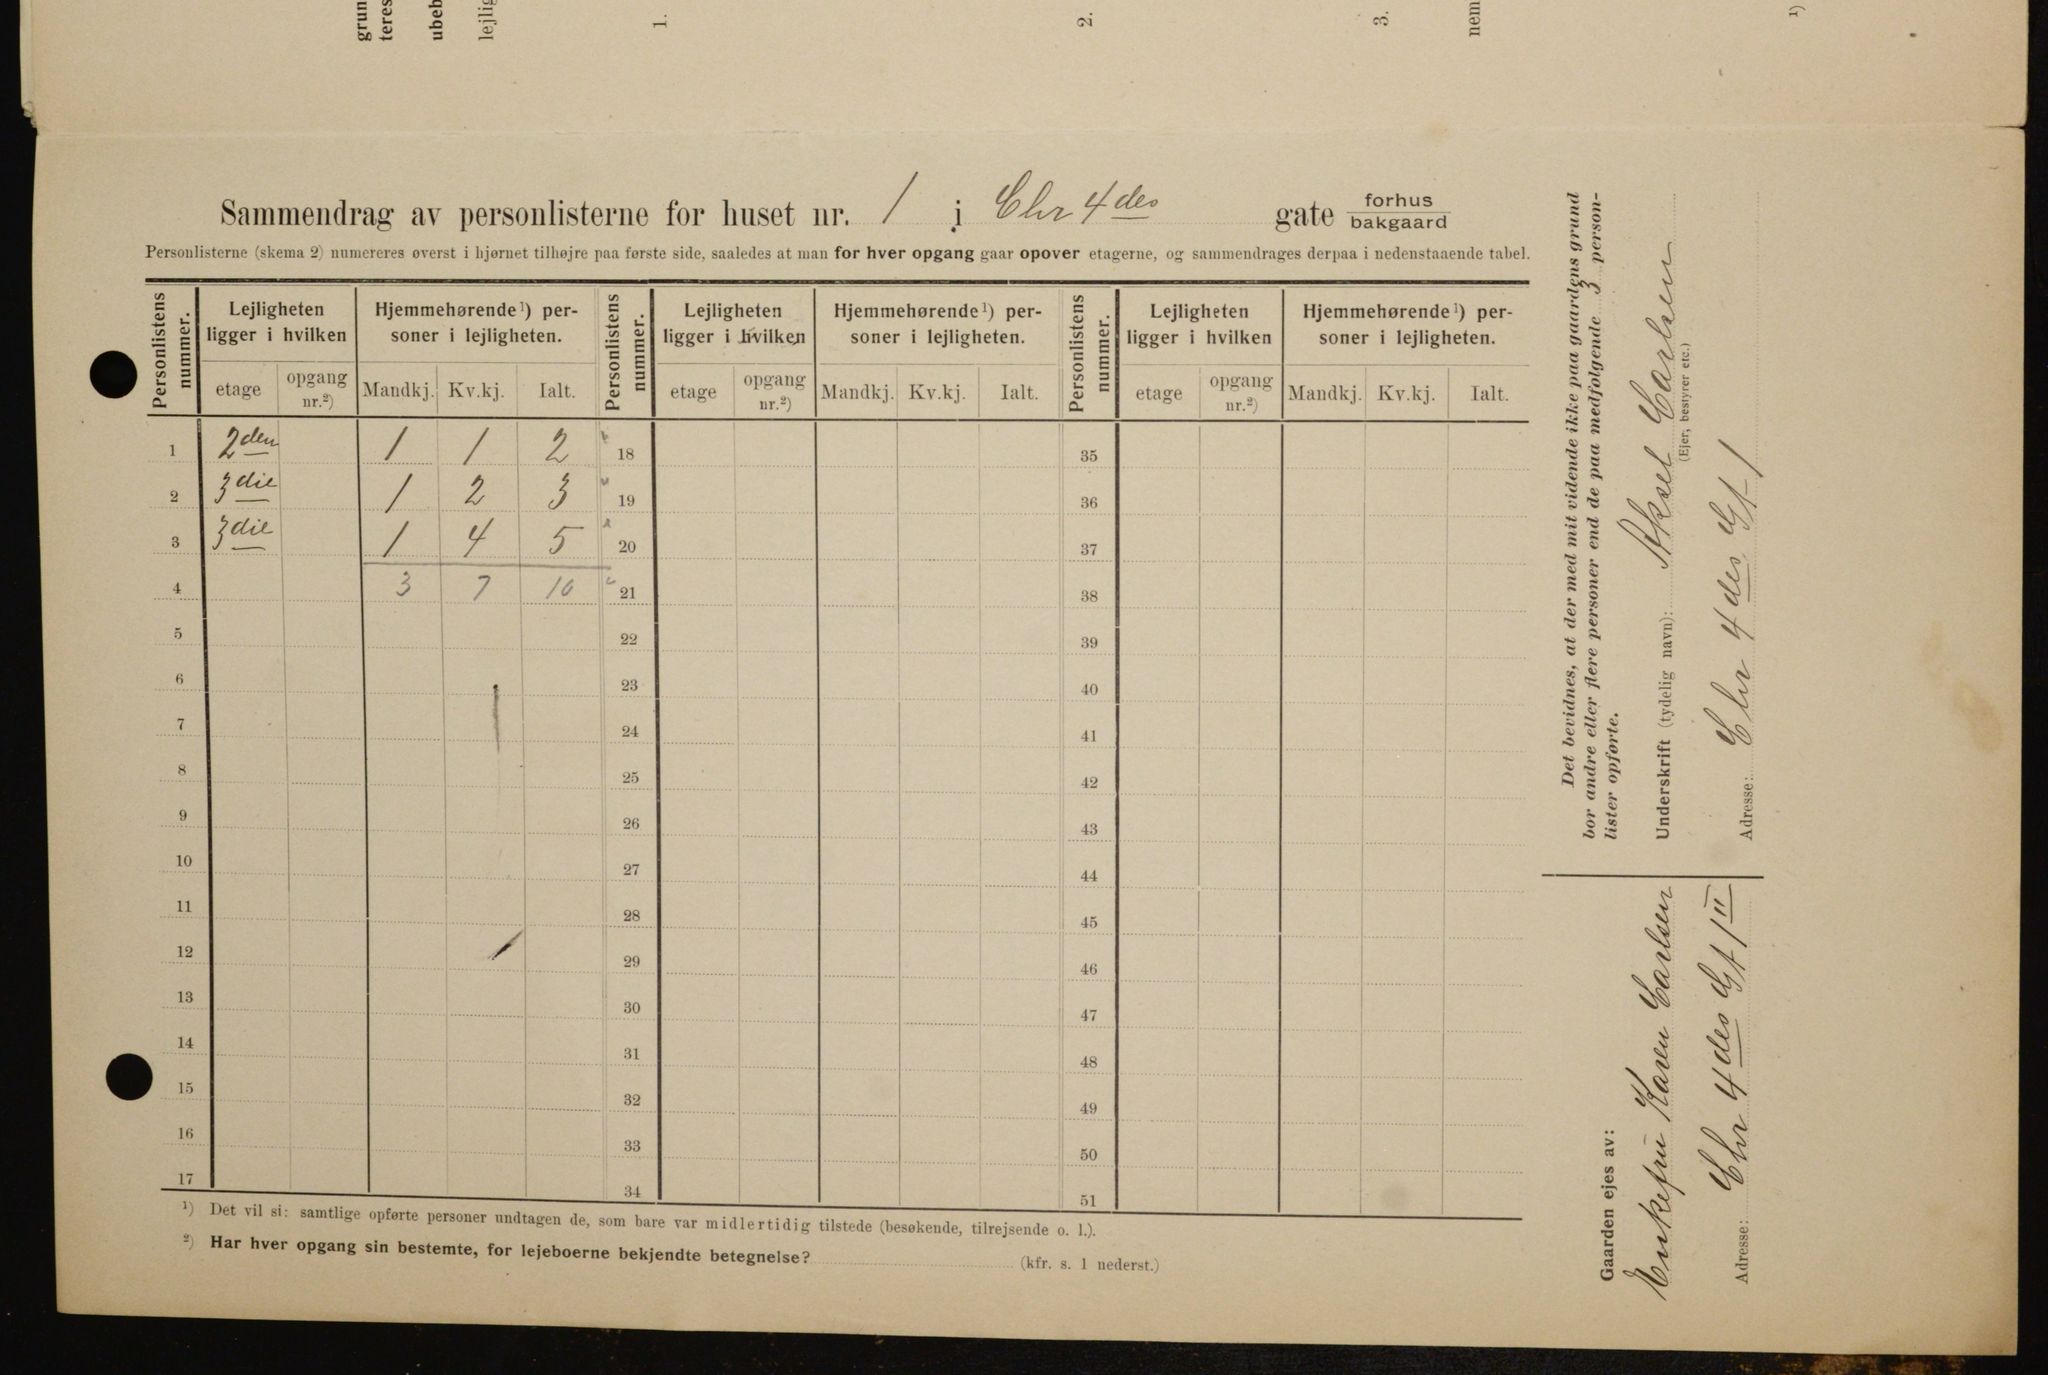 grun
teres
ubeb
lejlig
1.
2.
3.
nem
1)
Sammendrag av personlisterne for huset nr. 1 i Chr 4des gate forhus
bakgaard
Personlisterne (skema 2) numereres øverst i hjørnet tilhøjre paa første side, saaledes at man for hver opgang gaar opover etagerne, og sammendrages derpaa i nedenstaaende tabel.
Personlistens nummer. Lejligheten ligger i hvilken Hjemmehørende 1) personer i lejligheten. Personlistens nummer. Lejligheten ligger i hvilken Hjemmehørende 1) personer i lejligheten. Personlistens nummer. Lejligheten ligger i hvilken Hjemmehørende 1) personer i lejligheten.
etage opgang nr.2) Mandkj. Kv.kj. Ialt. etage opgang nr.2) Mandkj. Kv.kj. Ialt. etage opgang nr.2) Mandkj. Kv.kj. Ialt.
1 2den 1 1 2 18 35
2 3die 1 2 3 19 36
3 3die 1 4 5 20 37
4 3 7 10 21 38
5 22 39
6 23 40
7 24 41
8 25 42
9 26 43
10 27 44
11 28 45
12 29 46
13 30 47
14 31 48
15 32 49
16 33 50
17 34 51
1) Det vil si: samtlige opførte personer undtagen de, som bare var midlertidig tilstede (besøkende, tilrejsende o. l.).
2) Har hver opgang sin bestemte, for lejeboerne bekjendte betegnelse? (kfr. s. 1 nederst.)
Det bevidnes, at der med mit vidende ikke paa gaardens grund
bor andre eller flere personer end de paa medfølgende 3 person-
lister opførte.
Underskrift (tydelig navn): Aksel Carlsen
(Ejer, bestyrer etc.)
Adresse: Chr 4des Gt 1
Gaarden ejes av:
Enkefru Karen Carlsen
Adresse: Chr 4des Gt 1 II